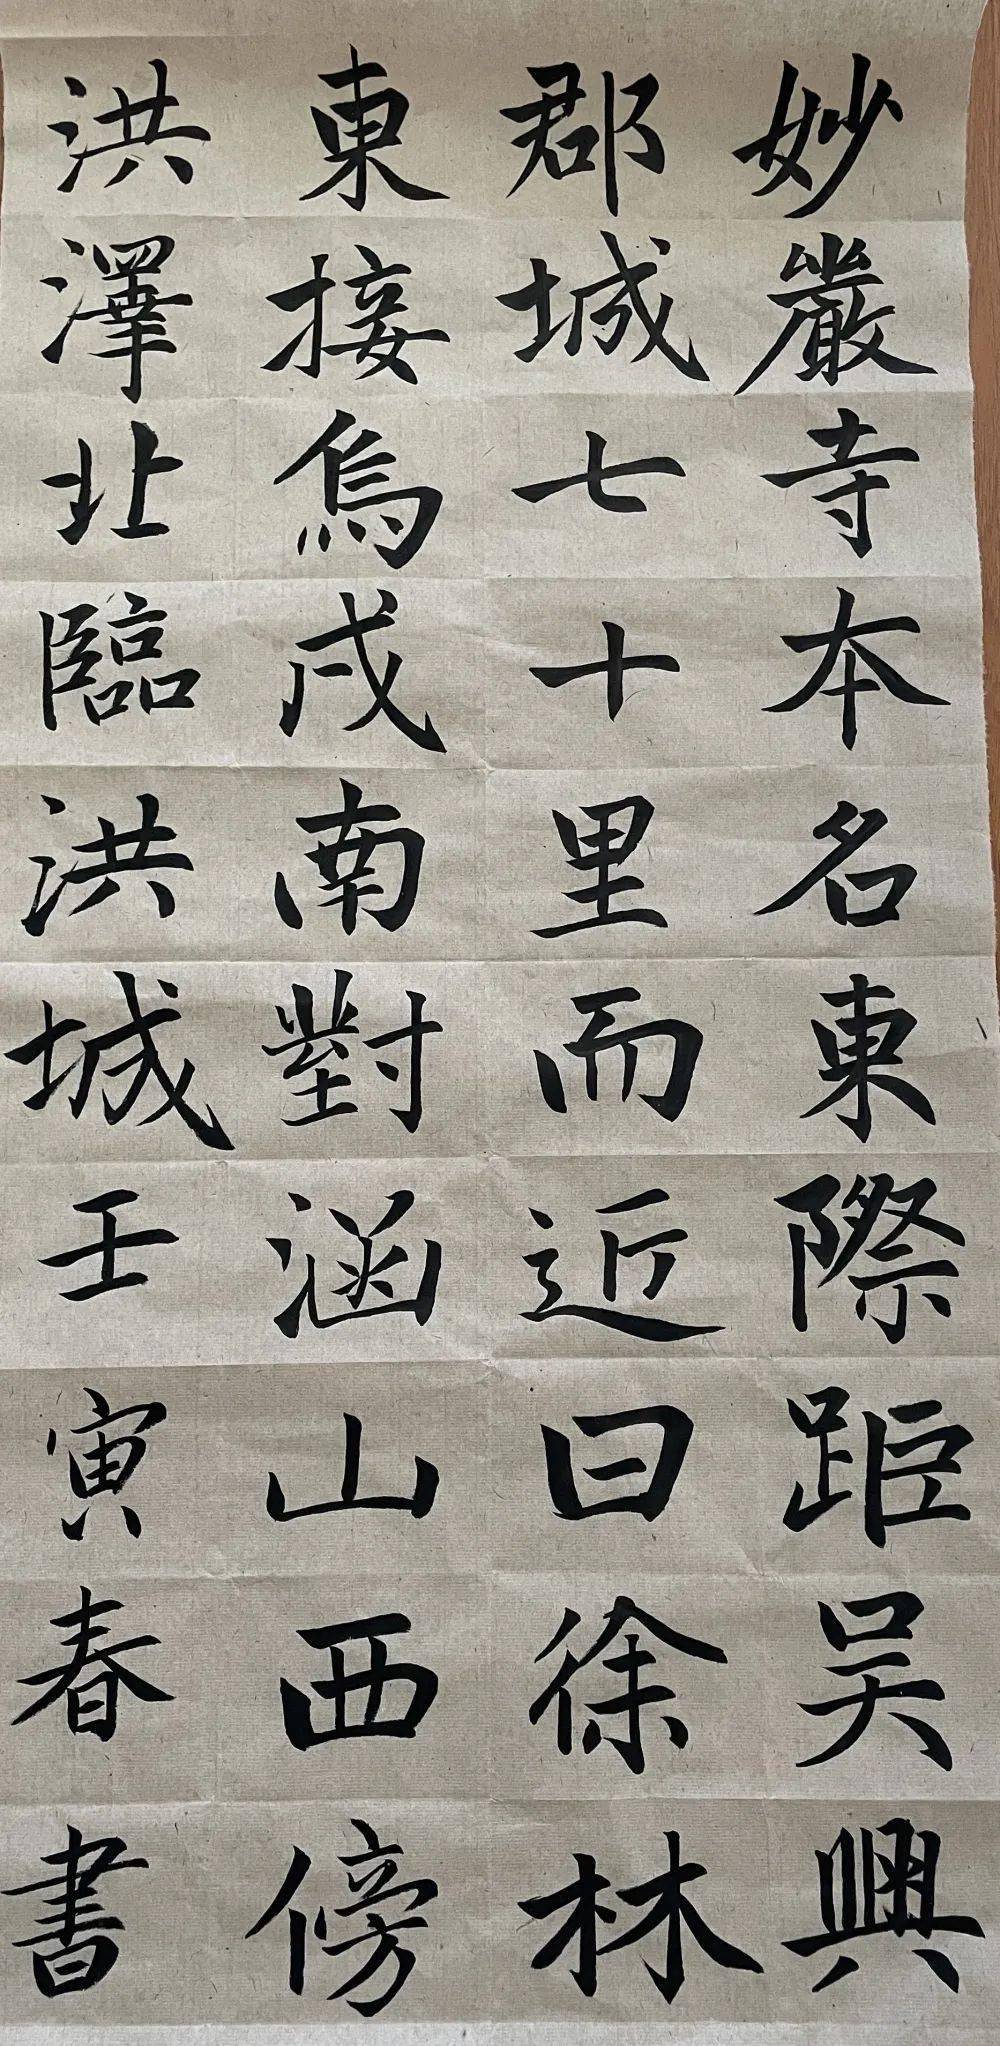 妙嚴寺本名東際距吴興
郡城七十里而近曰徐林
東接烏戍南對涵山西傍
洪澤北臨洪城壬寅春書